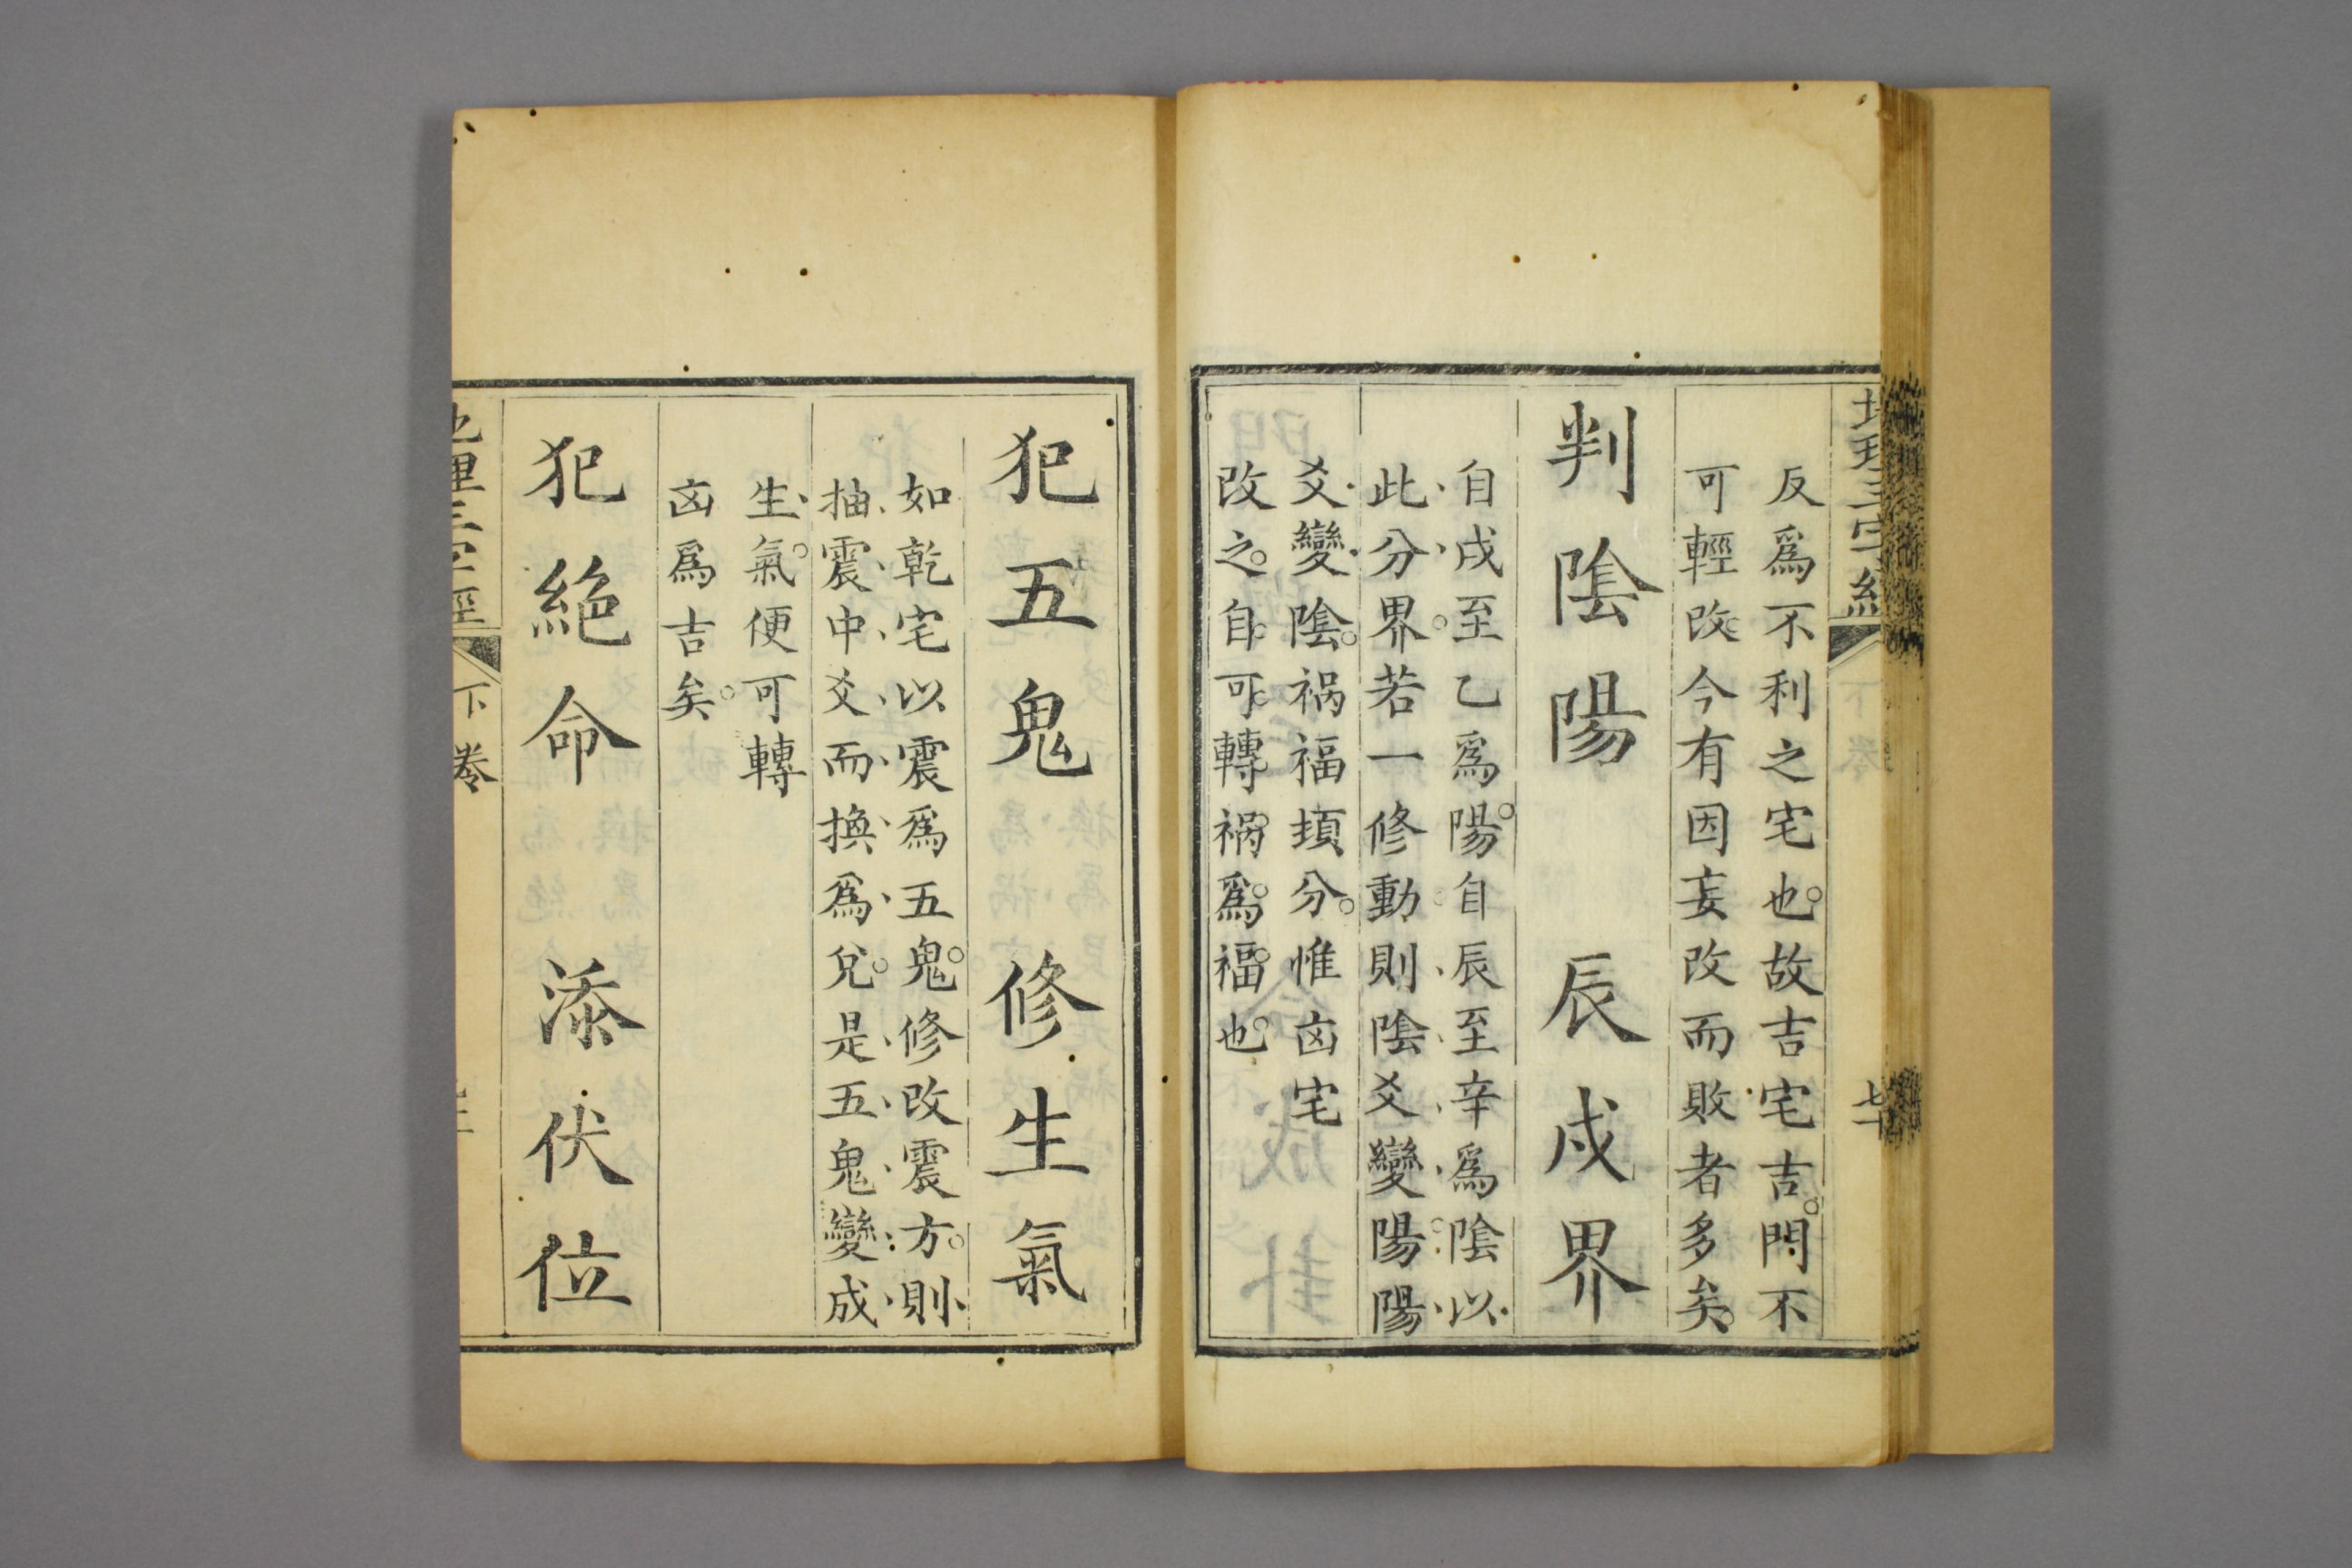 地理三字經 下卷 七十一
反爲不利之宅也故吉宅吉門不
可輕改今有因妄改而敗者多矣
判陰陽 辰戌界
自戌至乙爲陽自辰至辛爲陰以
此分界若一修動則陰爻變陽陽
爻變陰祸福頃分惟凶宅
改之自可轉祸爲福也
犯五鬼 修生氣
如乾宅以震爲五鬼修改震方則
抽震中爻而換爲兌是五鬼變成
生氣便可轉
凶爲吉矣
犯絕命 添伏位
地理三字經 下卷